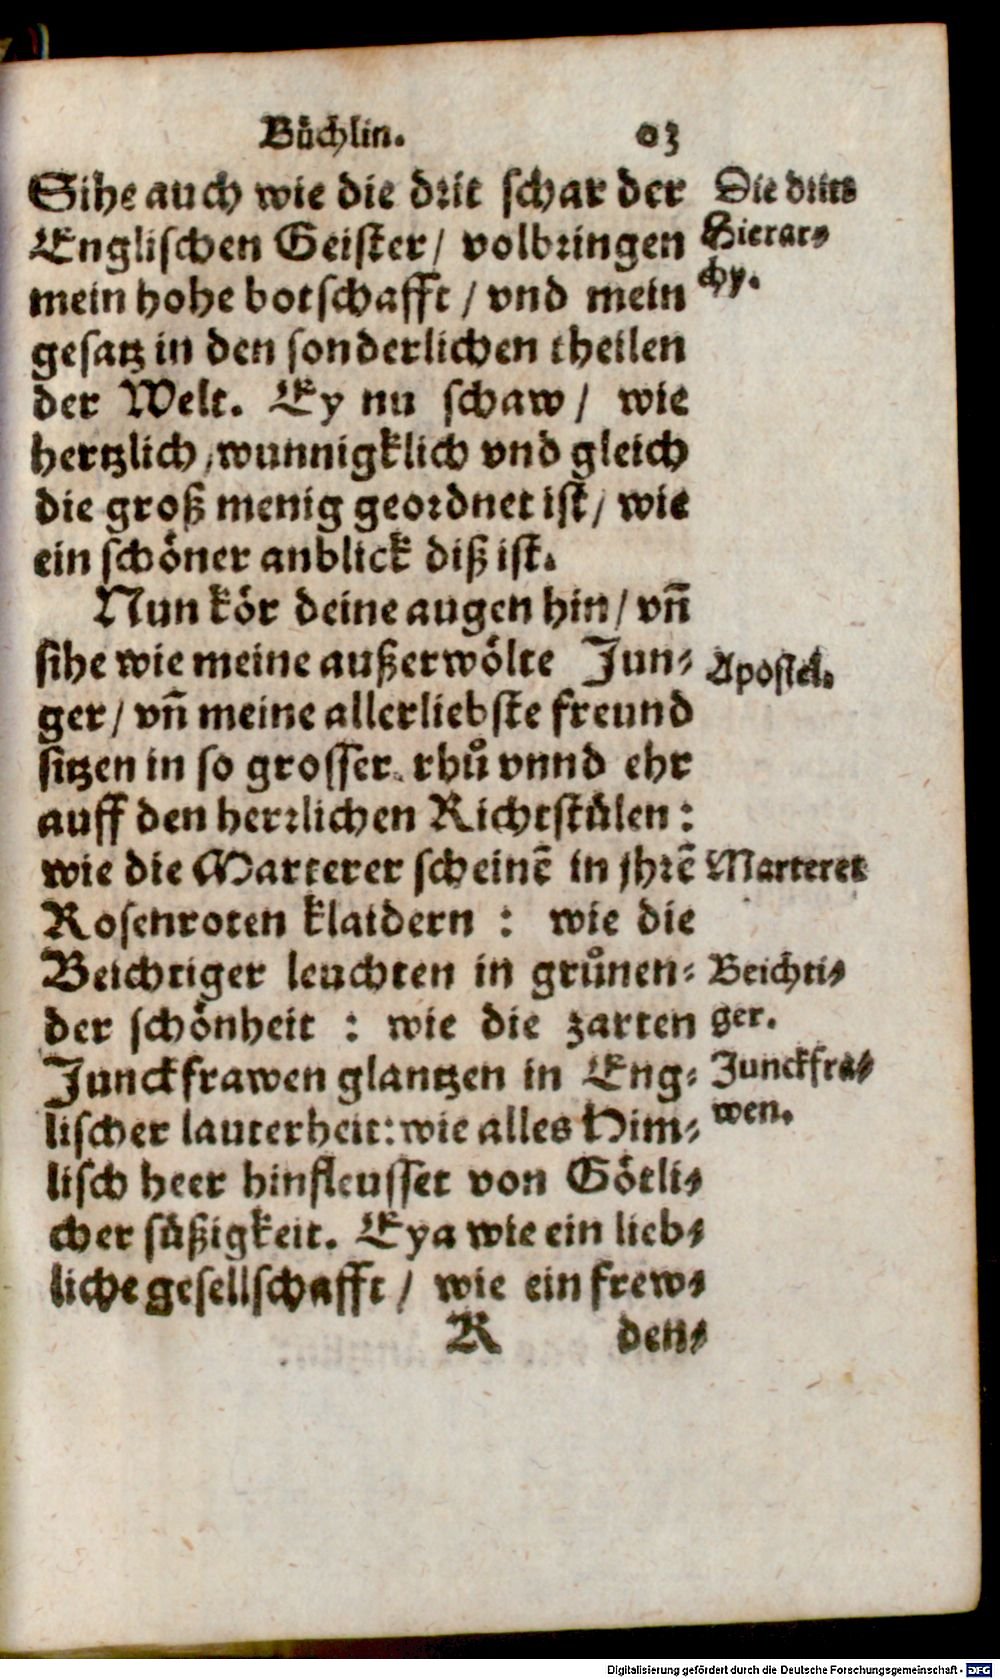 Büchlin. 63
Sihe auch wie die drit schar der
Englischen Geister/ volbringen
mein hohe botschafft / vnd mein
gesatz in den sonderlichen theilen
der Welt. Ey nu schaw / wie
hertzlich, wunnigklich vnd gleich
die groß menig geordnet ist / wie
ein schöner anblick diß ist.
Nun kör deine augen hin / vñ
sihe wie meine außerwölte Jun-
ger / vñ meine allerliebste freund
sitzen in so grosser rhů vnnd ehr
auff den herrlichen Richtstülen :
wie die Marterer scheinẽ in jhrẽ
Rosenroten klaidern : wie die
Beichtiger leuchten in grůnen-
der schönheit : wie die zarten
Junckfrawen glantzen in Eng-
lischer lauterheit: wie alles Him-
lisch heer hinfleusset von Götli-
cher süßigkeit. Eya wie ein lieb-
liche gesellschafft / wie ein frew-
R den-
Die dritte
Hierar-
chy.
Apostel.
Marterer
Beichti-
ger.
Junckfra-
wen.
Digitalisierung gefördert durch die Deutsche Forschungsgemeinschaft - DFG